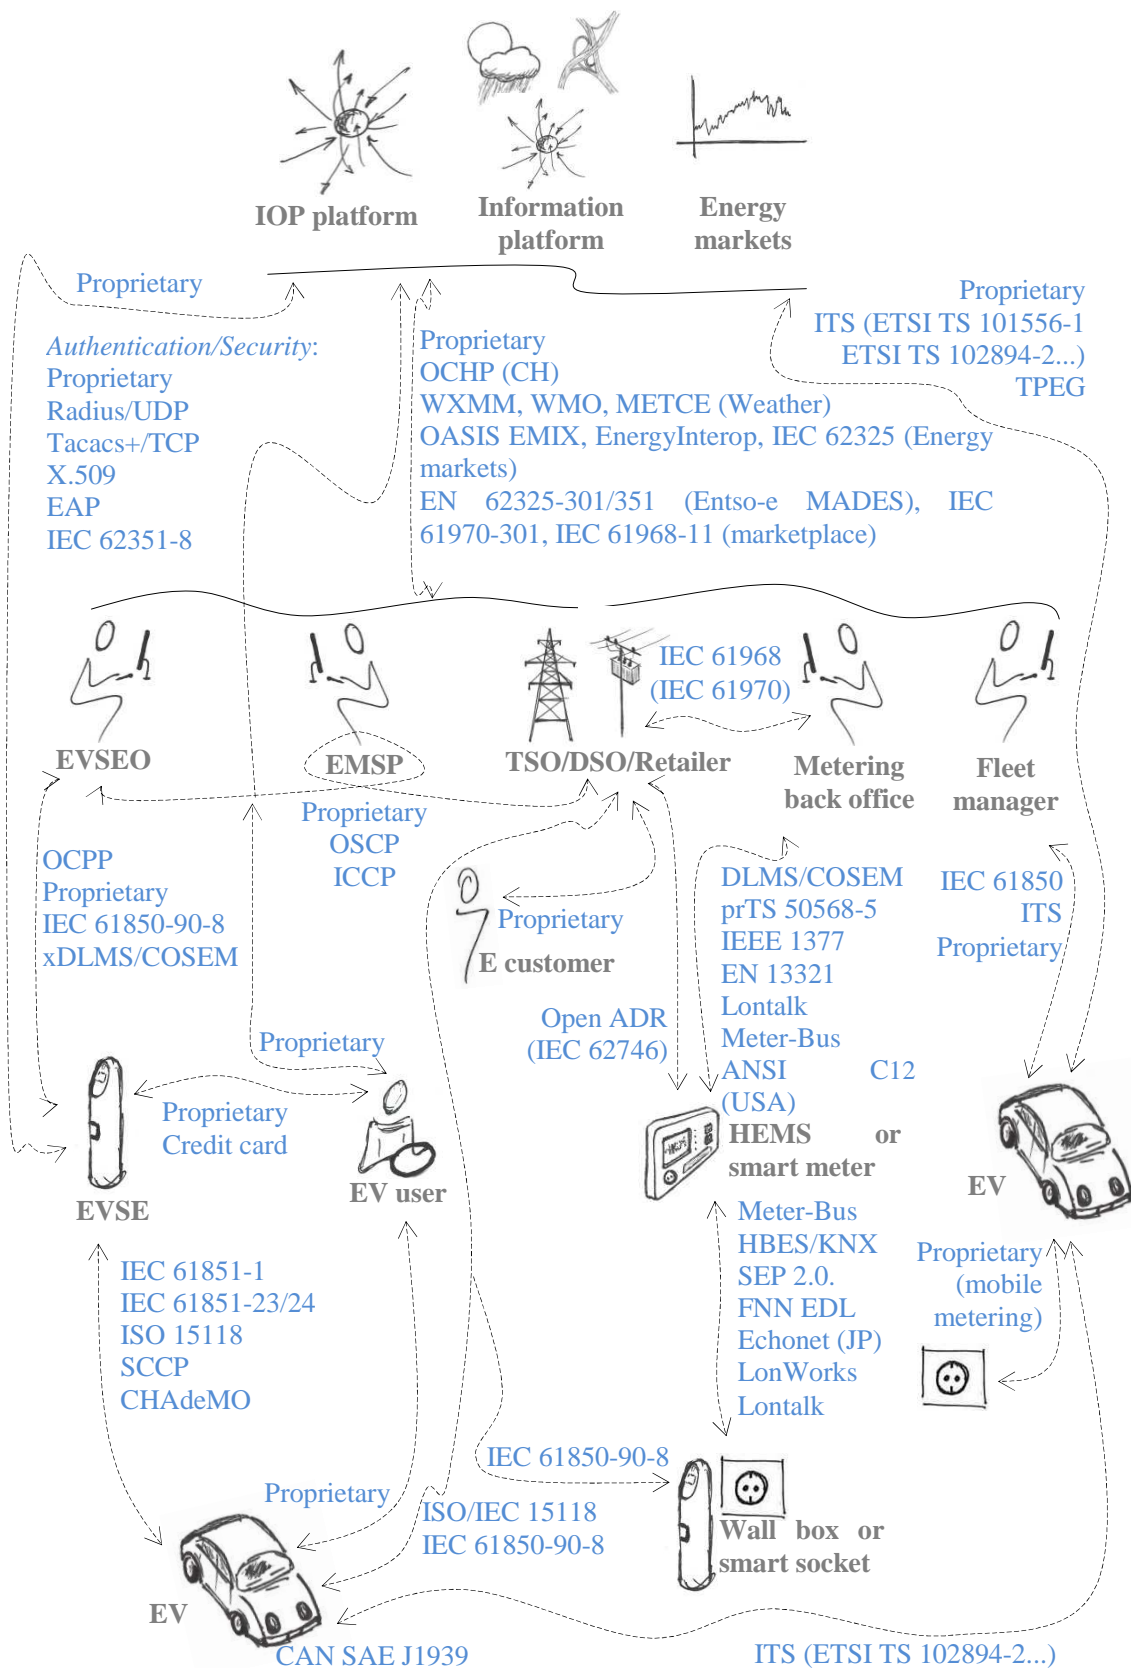 IOP platform
Information
platform
Energy
markets
Proprietary
Authentication/Security:
Proprietary
Radius/UDP
Tacacs+/TCP
X.509
EAP
IEC 62351-8
Proprietary
OCHP (CH)
WXMM, WMO, METCE (Weather)
OASIS EMIX, EnergyInterop, IEC 62325 (Energy
markets)
EN 62325-301/351 (Entso-e MADES), IEC
61970-301, IEC 61968-11 (marketplace)
Proprietary
ITS (ETSI TS 101556-1
ETSI TS 102894-2...)
TPEG
IEC 61968
(IEC 61970)
EVSEO
EMSP
TSO/DSO/Retailer
Metering
back office
Fleet
manager
Proprietary
OSCP
ICCP
OCPP
Proprietary
IEC 61850-90-8
xDLMS/COSEM
Proprietary
E customer
DLMS/COSEM
prTS 50568-5
IEEE 1377
EN 13321
Lontalk
Meter-Bus
ANSI C12
(USA)
IEC 61850
ITS
Proprietary
Open ADR
(IEC 62746)
Proprietary
Proprietary
Credit card
EVSE
EV user
HEMS or
smart meter
EV
IEC 61851-1
IEC 61851-23/24
ISO 15118
SCCP
CHAdeMO
Meter-Bus
HBES/KNX
SEP 2.0.
FNN EDL
Echonet (JP)
LonWorks
Lontalk
Proprietary
(mobile
metering)
IEC 61850-90-8
Proprietary
ISO/IEC 15118
IEC 61850-90-8
Wall box or
smart socket
EV
CAN SAE J1939
ITS (ETSI TS 102894-2...)